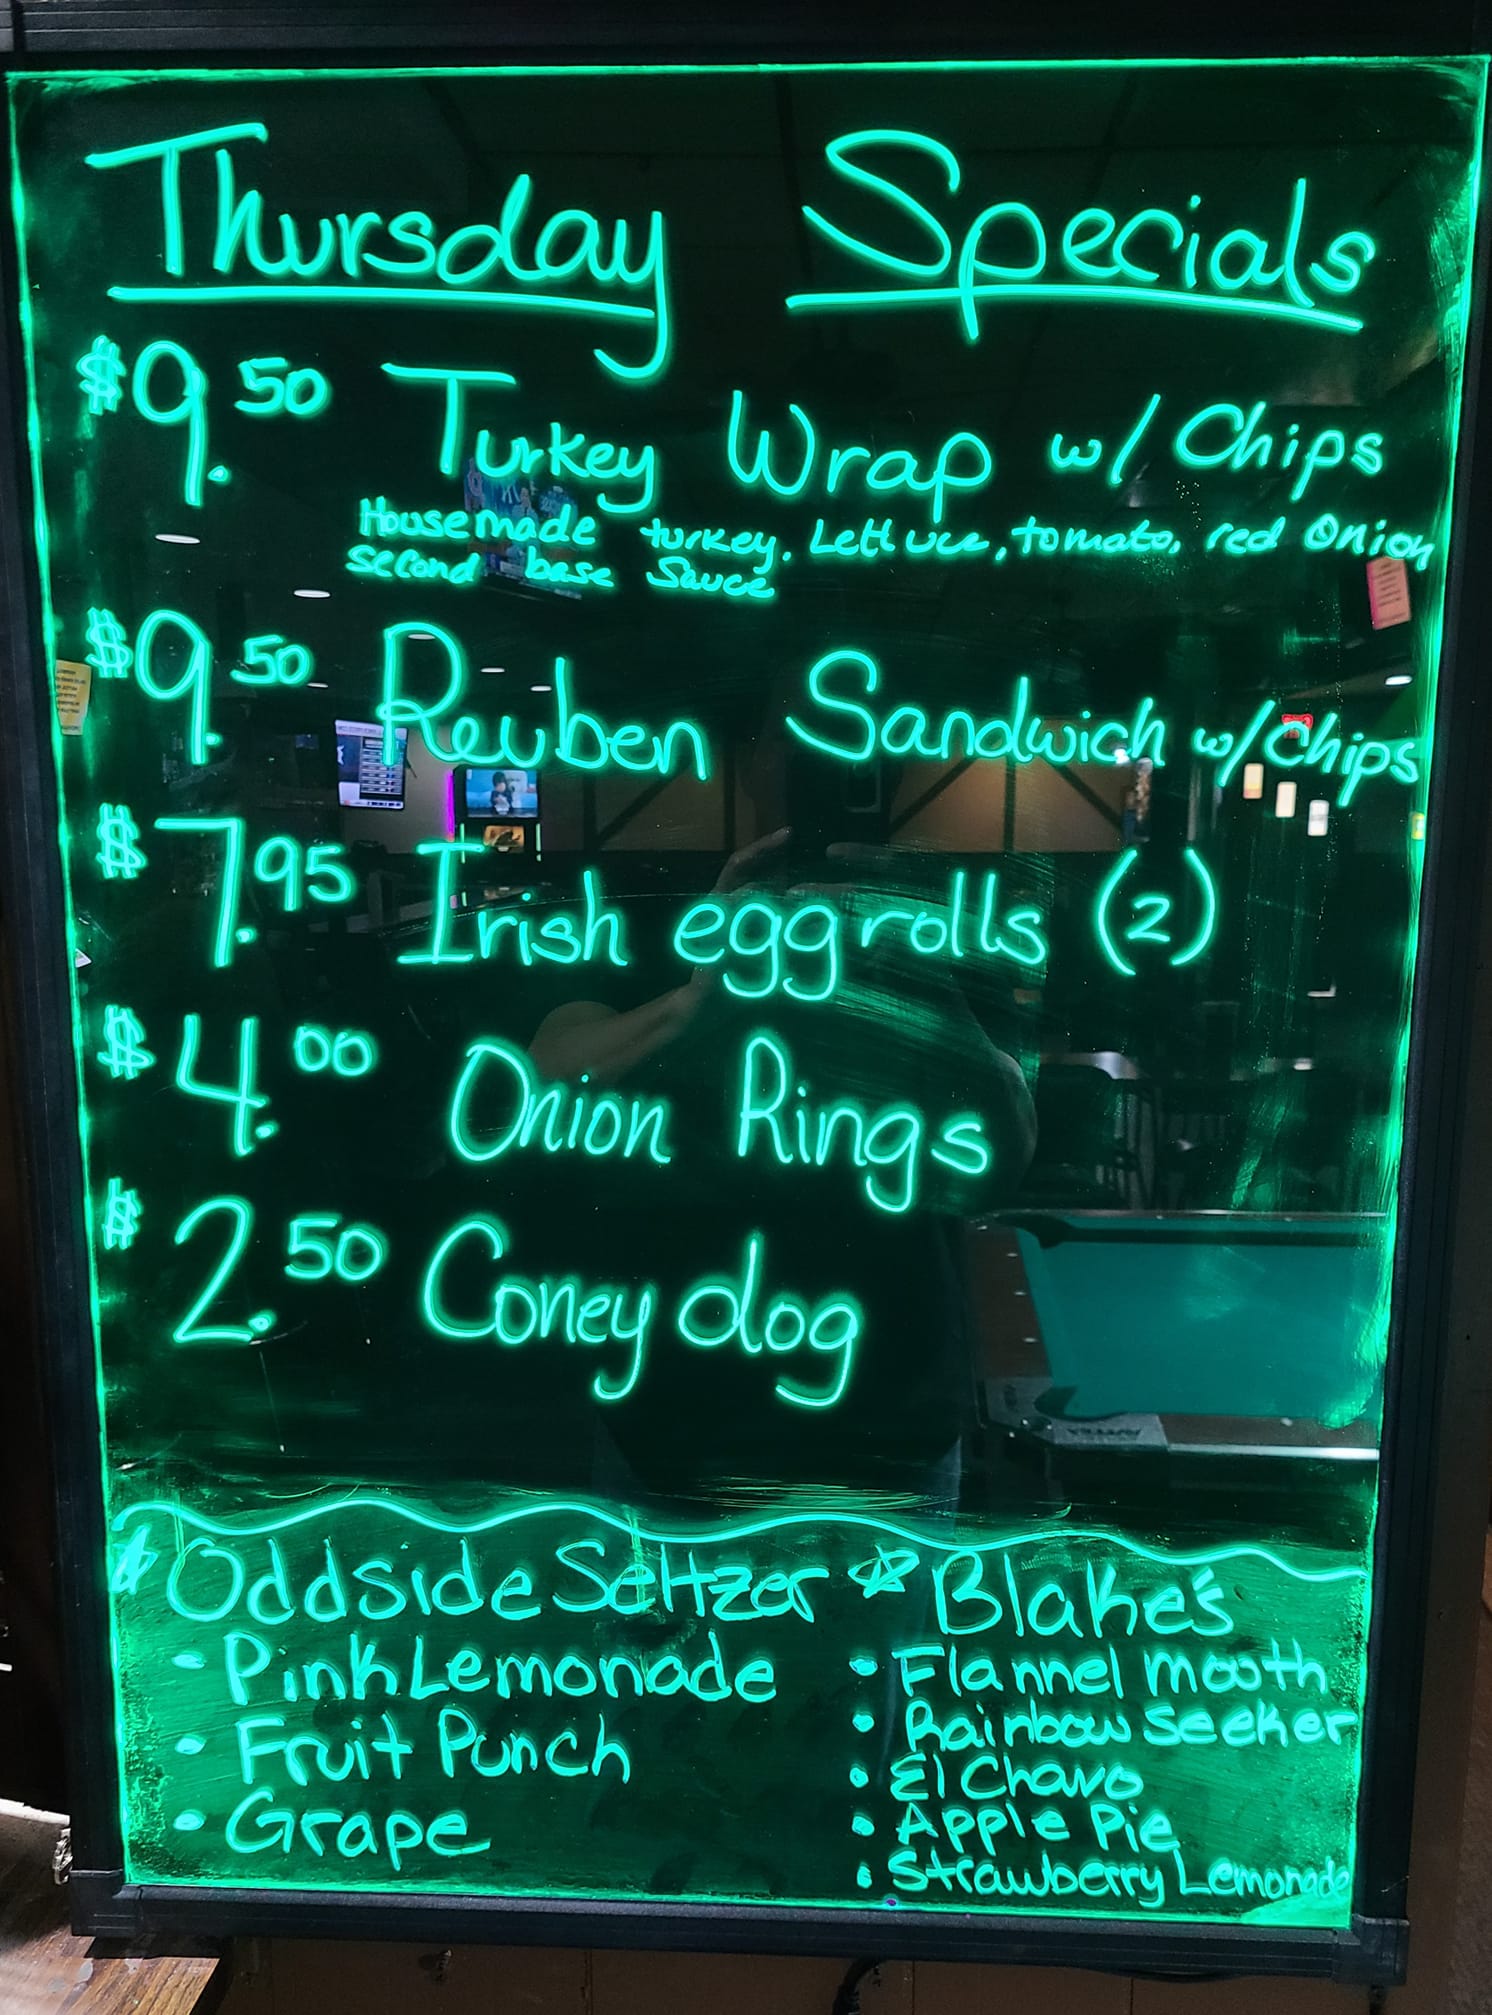 Thursday Specials
$9.50 Turkey Wrap w/ Chips
Housemade turkey. Lettuce, tomato, red Onion
second base Sauce
$9.50 Reuben Sandwich w/ Chips
$7.95 Irish eggrolls (2)
$4.00 Onion Rings
$2.50 Coney dog
Oddside Seltzer
• Pink Lemonade
• Fruit Punch
• Grape
Blake's
• Flannel mooth
• Rainbow Seeker
• El Chavo
• Apple Pie
• Strawberry Lemonade